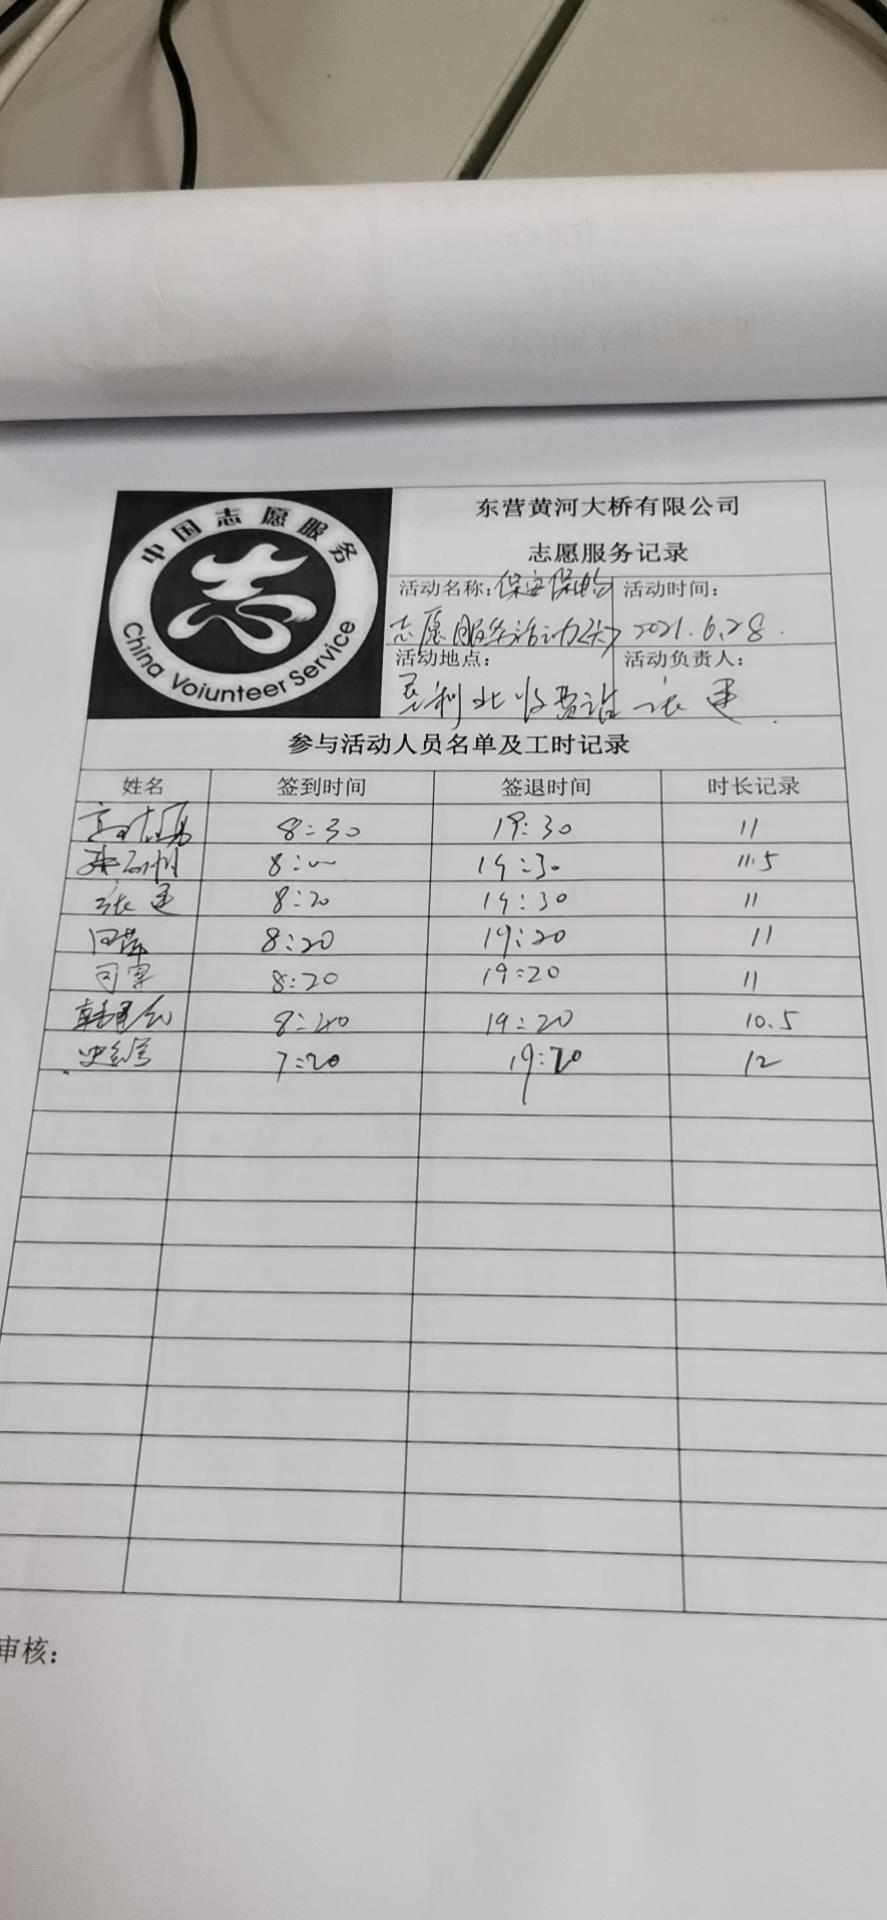 中国志愿服务
China Voiunteer Service
东营黄河大桥有限公司
志愿服务记录
活动名称：保安保畅 活动时间：
志愿服务活动 2021.6.28.
活动地点： 活动负责人：
垦利北收费站 张建
参与活动人员名单及工时记录
姓名 签到时间 签退时间 时长记录
8:30 19:30 11
8: 19:30 11.5
张建 8:20 19:30 11
8:20 19:20 11
司寧 8:20 19:20 11
8:40 19:20 10.5
7:20 19:20 12
审核：